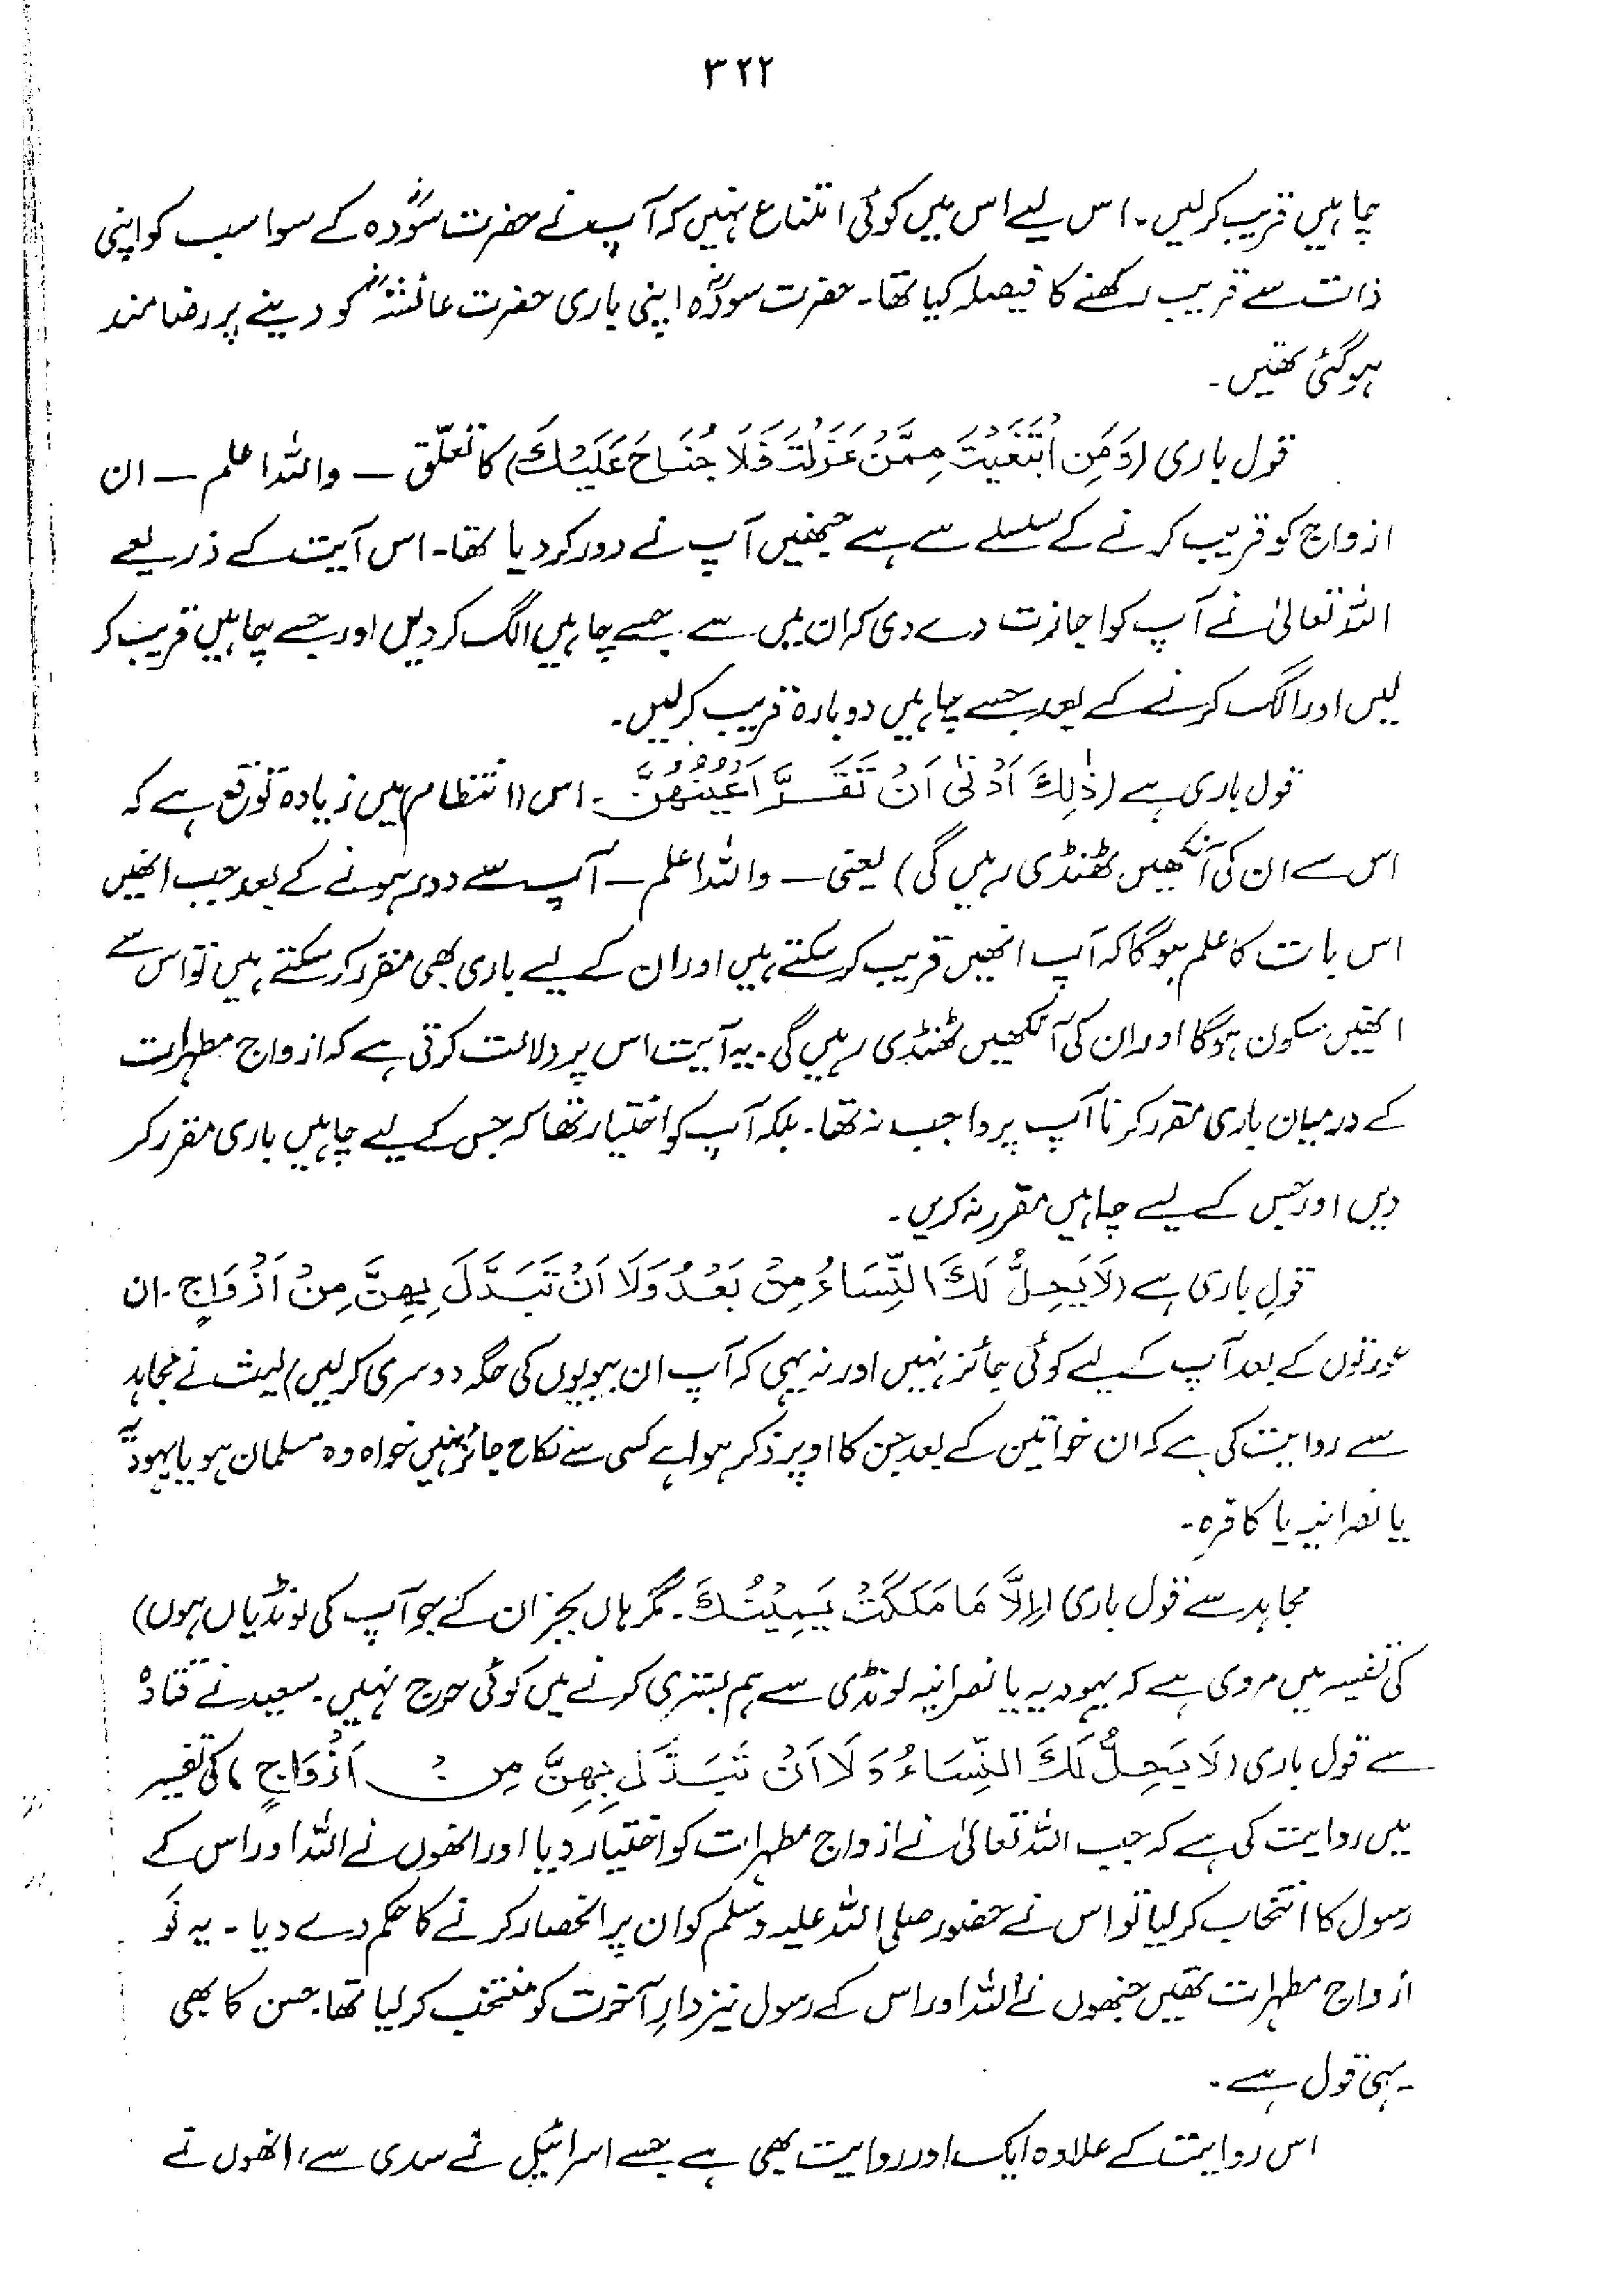 ۳۲۲
چاہیں قریب کرلیں۔ اس لیے اس میں کوئی امتناع نہیں کہ آپ نے حضرت سودہؓ کے سوا سب کو اپنی
ذات سے قریب رکھنے کا فیصلہ کیا تھا۔ حضرت سودہؓ اپنی باری حضرت عائشہؓ کو دینے پر رضامند
ہوگئی تھیں۔
قول باری (وَمَنِ ابْتَغَيْتَ مِمَّنْ عَزَلْتَ فَلَا جُنَاحَ عَلَيْكَ) کا تعلّق — واللہ اعلم — ان
ازواج کو قریب کرنے کے سلسلے سے ہے جنھیں آپ نے دور کردیا تھا۔ اس آیت کے ذریعے
اللہ تعالیٰ نے آپ کو اجازت دے دی کہ ان میں سے جسے چاہیں الگ کردیں اور جسے چاہیں قریب کر
لیں اور الگ کرنے کے بعد جسے چاہیں دوبارہ قریب کرلیں۔
قول باری ہے (ذٰلِكَ اَدْنٰى اَنْ تَقَرَّ اَعْيُنُهُنَّ۔ اس (انتظام) میں زیادہ توقع ہے کہ
اس سے ان کی آنکھیں ٹھنڈی رہیں گی) یعنی — واللہ اعلم — آپ سے دور ہونے کے بعد جب انھیں
اس بات کا علم ہوگا کہ آپ انھیں قریب کرسکتے ہیں اور ان کے لیے باری بھی مقرر کرسکتے ہیں تو اس سے
انھیں سکون ہوگا اور ان کی آنکھیں ٹھنڈی رہیں گی۔ یہ آیت اس پر دلالت کرتی ہے کہ ازواج مطہرات
کے درمیان باری مقرر کرنا آپ پر واجب نہ تھا۔ بلکہ آپ کو اختیار تھا کہ جس کے لیے چاہیں باری مقرر کر
دیں اور جس کے لیے چاہیں مقرر نہ کریں۔
قولِ باری ہے (لَا يَحِلُّ لَكَ النِّسَاءُ مِنْ بَعْدُ وَلَا اَنْ تَبَدَّلَ بِهِنَّ مِنْ اَزْوَاجٍ۔ ان
عورتوں کے بعد آپ کے لیے کوئی جائز نہیں اور نہ یہی کہ آپ ان بیویوں کی جگہ دوسری کرلیں) لیث نے مجاہد
سے روایت کی ہے کہ ان خواتین کے بعد جن کا اوپر ذکر ہوا ہے کسی سے نکاح جائز نہیں خواہ وہ مسلمان ہو یا یہودیہ
یا نصرانیہ یا کافرہ۔
مجاہد سے قول باری (اِلَّا مَا مَلَكَتْ يَمِيْنُكَ۔ مگر ہاں بجز ان کے جو آپ کی لونڈیاں ہوں)
کی تفسیر میں مروی ہے کہ یہودیہ یا نصرانیہ لونڈی سے ہم بستری کرنے میں کوئی حرج نہیں۔ سعید نے قتادہ
سے قول باری (لَا يَحِلُّ لَكَ النِّسَاءُ وَلَا اَنْ تَبَدَّلَ بِهِنَّ مِنْ اَزْوَاجٍ) کی تفسیر
میں روایت کی ہے کہ جب اللہ تعالیٰ نے ازواج مطہرات کو اختیار دیا اور انھوں نے اللہ اور اس کے
رسول کا انتخاب کرلیا تو اس نے حضور صلی اللہ علیہ وسلم کو ان پر انحصار کرنے کا حکم دے دیا۔ یہ نَو
ازواج مطہرات تھیں جنھوں نے اللہ اور اس کے رسول نیز دارِ آخرت کو منتخب کرلیا تھا۔ حسن کا بھی
یہی قول ہے۔
اس روایت کے علاوہ ایک اور روایت بھی ہے جسے اسرائیل نے سدی سے، انھوں نے